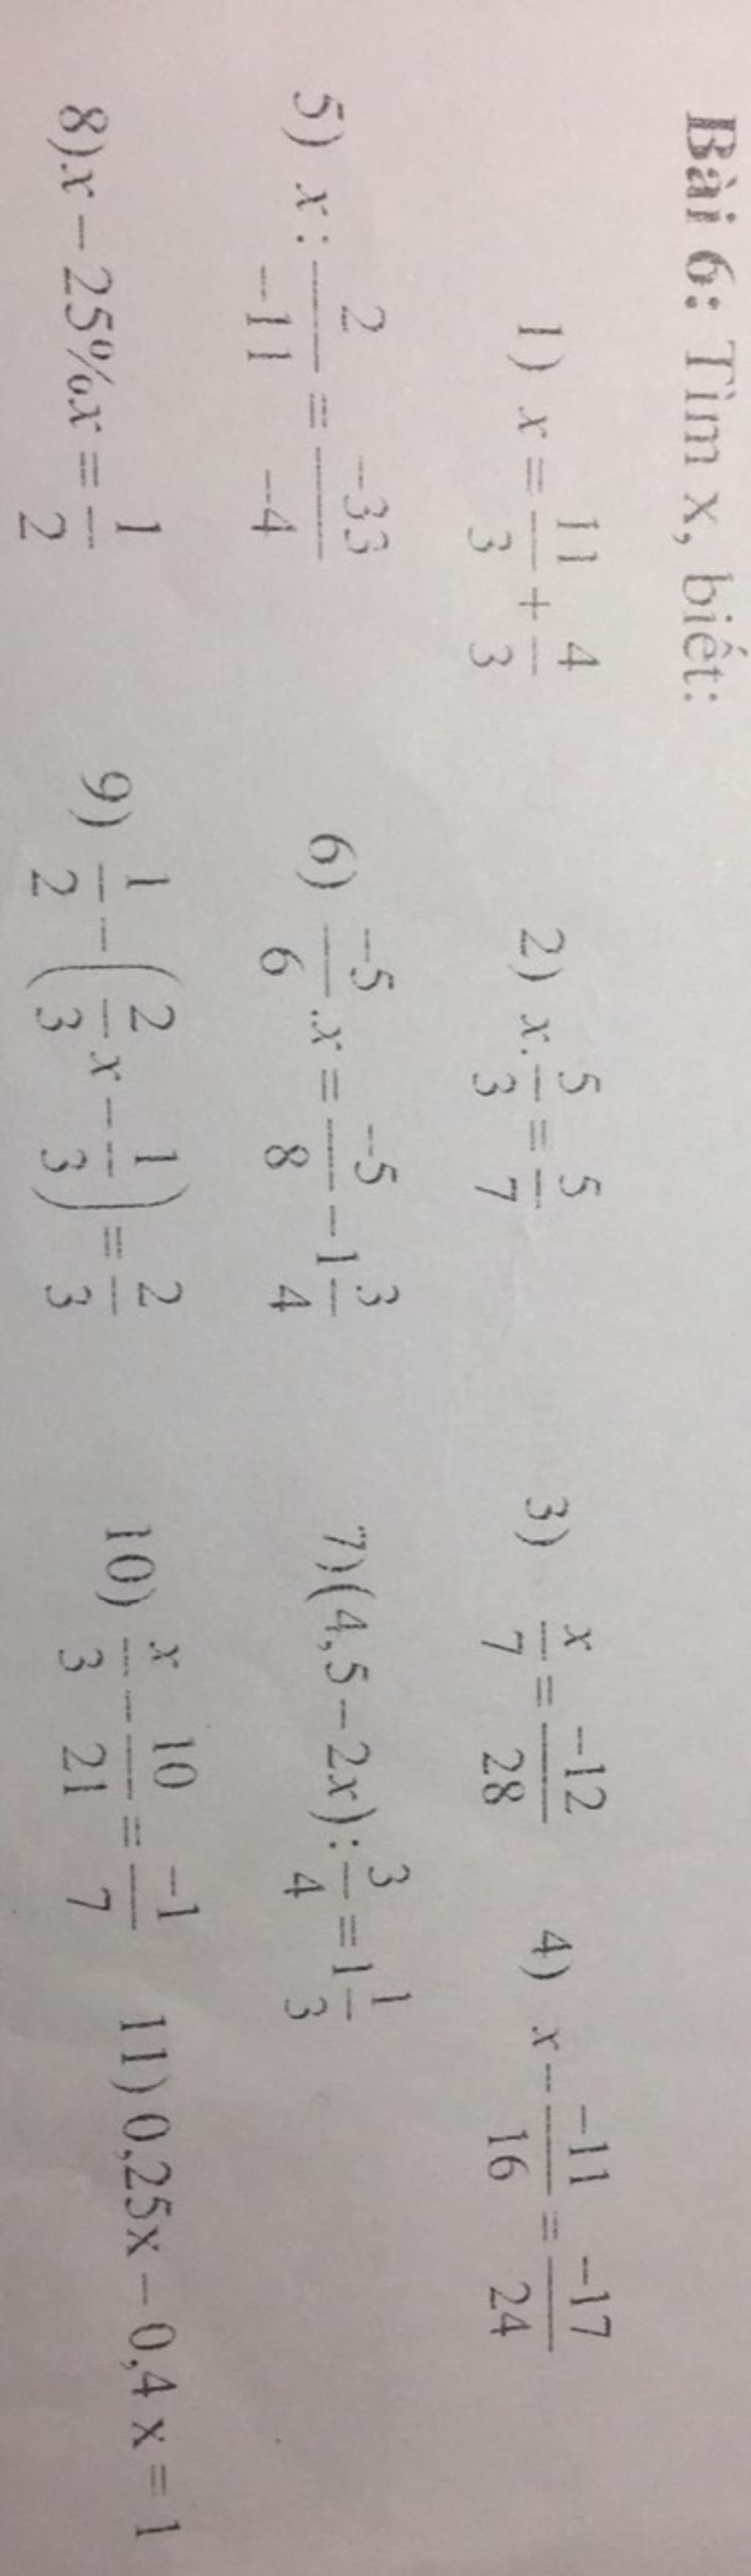 Bài 6: Tìm x, biết:
1) x = 11/3 + 4/3 2) x. 5/3 = 5/7 3) x/7 = -12/28 4) x - -11/16 = -17/24
5) x : 2/-11 = -33/-4 6) -5/6 .x = -5/8 - 1 3/4 7)(4,5 - 2x) : 3/4 = 1 1/3
8)x - 25%x = 1/2 9) 1/2 - (2/3 x - 1/3) = 2/3 10) x/3 - 10/21 = -1/7 11) 0,25x - 0,4 x = 1